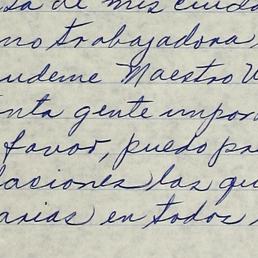 sa de mis ciuda
mo trabajadora
udeme Maestro V
inta gente impor
favor, puedo pa
laciones las qu
arias en todos